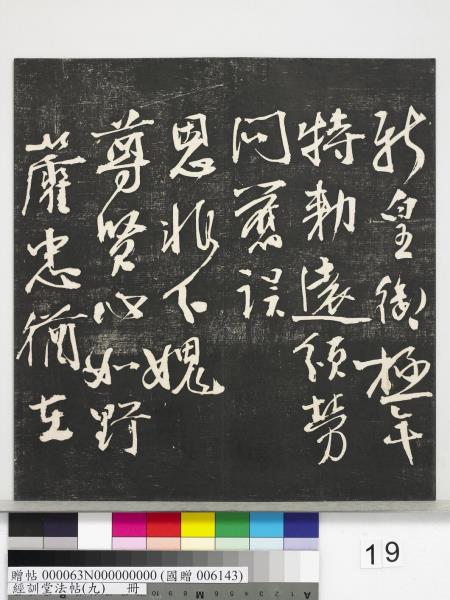 新皇御極年
特勅遠頒勞
問舊誤
恩非下媿
尊賢心如野
麋忠猶在
19
贈帖 000063N000000000 (國贈 006143)
經訓堂法帖(九) 冊